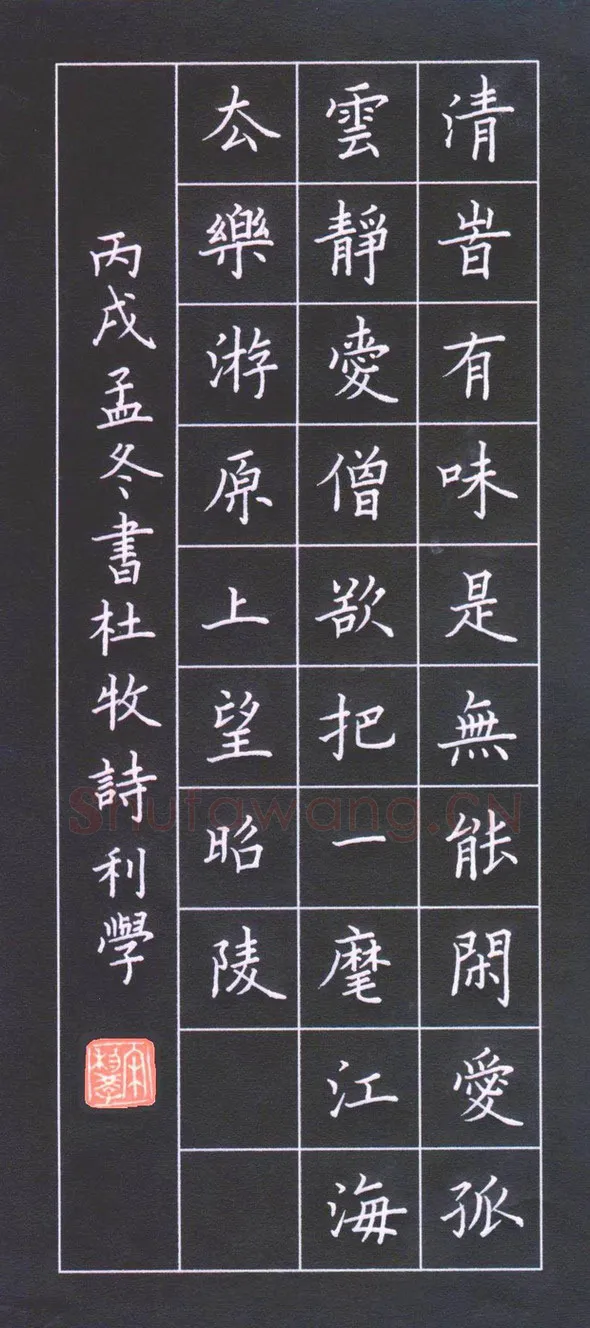 清旹有味是無能閑愛孤
雲靜愛僧欲把一麾江海
厺樂游原上望昭陵
丙戌孟冬書杜牧詩利學
Shufawang.CN